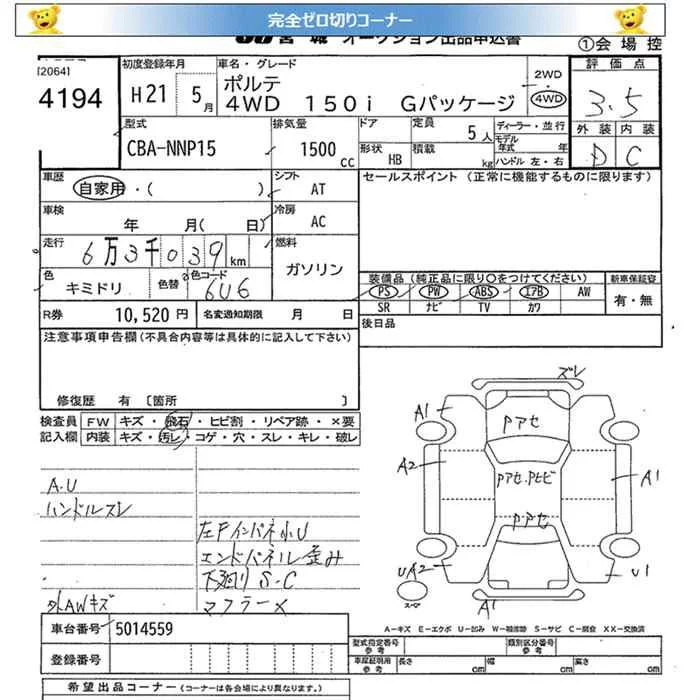 完全ゼロ切りコーナー
JU 宮 城 オークション出品申込書
①会 場 控
[2064]
4194
初度登録年月
H21 5月
車名・グレード
ポルテ
4WD 150i Gパッケージ
2WD
4WD
評 価 点
3.5
外 装 内 装
D C
型式
CBA-NNP15
排気量
1500 cc
ドア
形状 HB
定員 5人
積載 kg
ディーラー・並行
モデル年式 年
ハンドル 左・右
車歴
自家用・( )
シフト
AT
セールスポイント (正常に機能するものに限ります)
車検
年 月( 日)
冷房
AC
走行
6万3千039km
燃料
ガソリン
色
キミドリ
色替
色コード
6U6
装備品 (純正品に限り○をつけてください)
PS PW ABS エアB AW
SR ナビ TV カワ
新車保証容
有・無
R券 10,520 円
名変通知期限 月 日
後日品
注意事項申告欄(不具合内容等は具体的に記入して下さい)
修復歴 有 [箇所 ]
検査員
記入欄
FW キズ・飛石・ヒビ割・リペア跡・×要
内装 キズ・汚レ・コゲ・穴・スレ・キレ・破レ
A.U
ハンドルスレ
左Fインパネ小U
エンドパネル歪み
下廻り S-C
外AWキズ
マフラーX
ズレ
A1
Pアセ
A2
Pアセ.Pヒビ
A1
P.アセ
UA2
U1
スペア
A1
A=キズ E=エクボ U=凹み W=補修跡 S=サビ C=腐食 XX=交換済
車台番号 5014559
登録番号
型式指定番号
参考
類別区分番号
参考
車庫証明用
参考
長さ cm 幅 cm 高さ cm
希望出品コーナー (コーナーは各会場により異なります。)